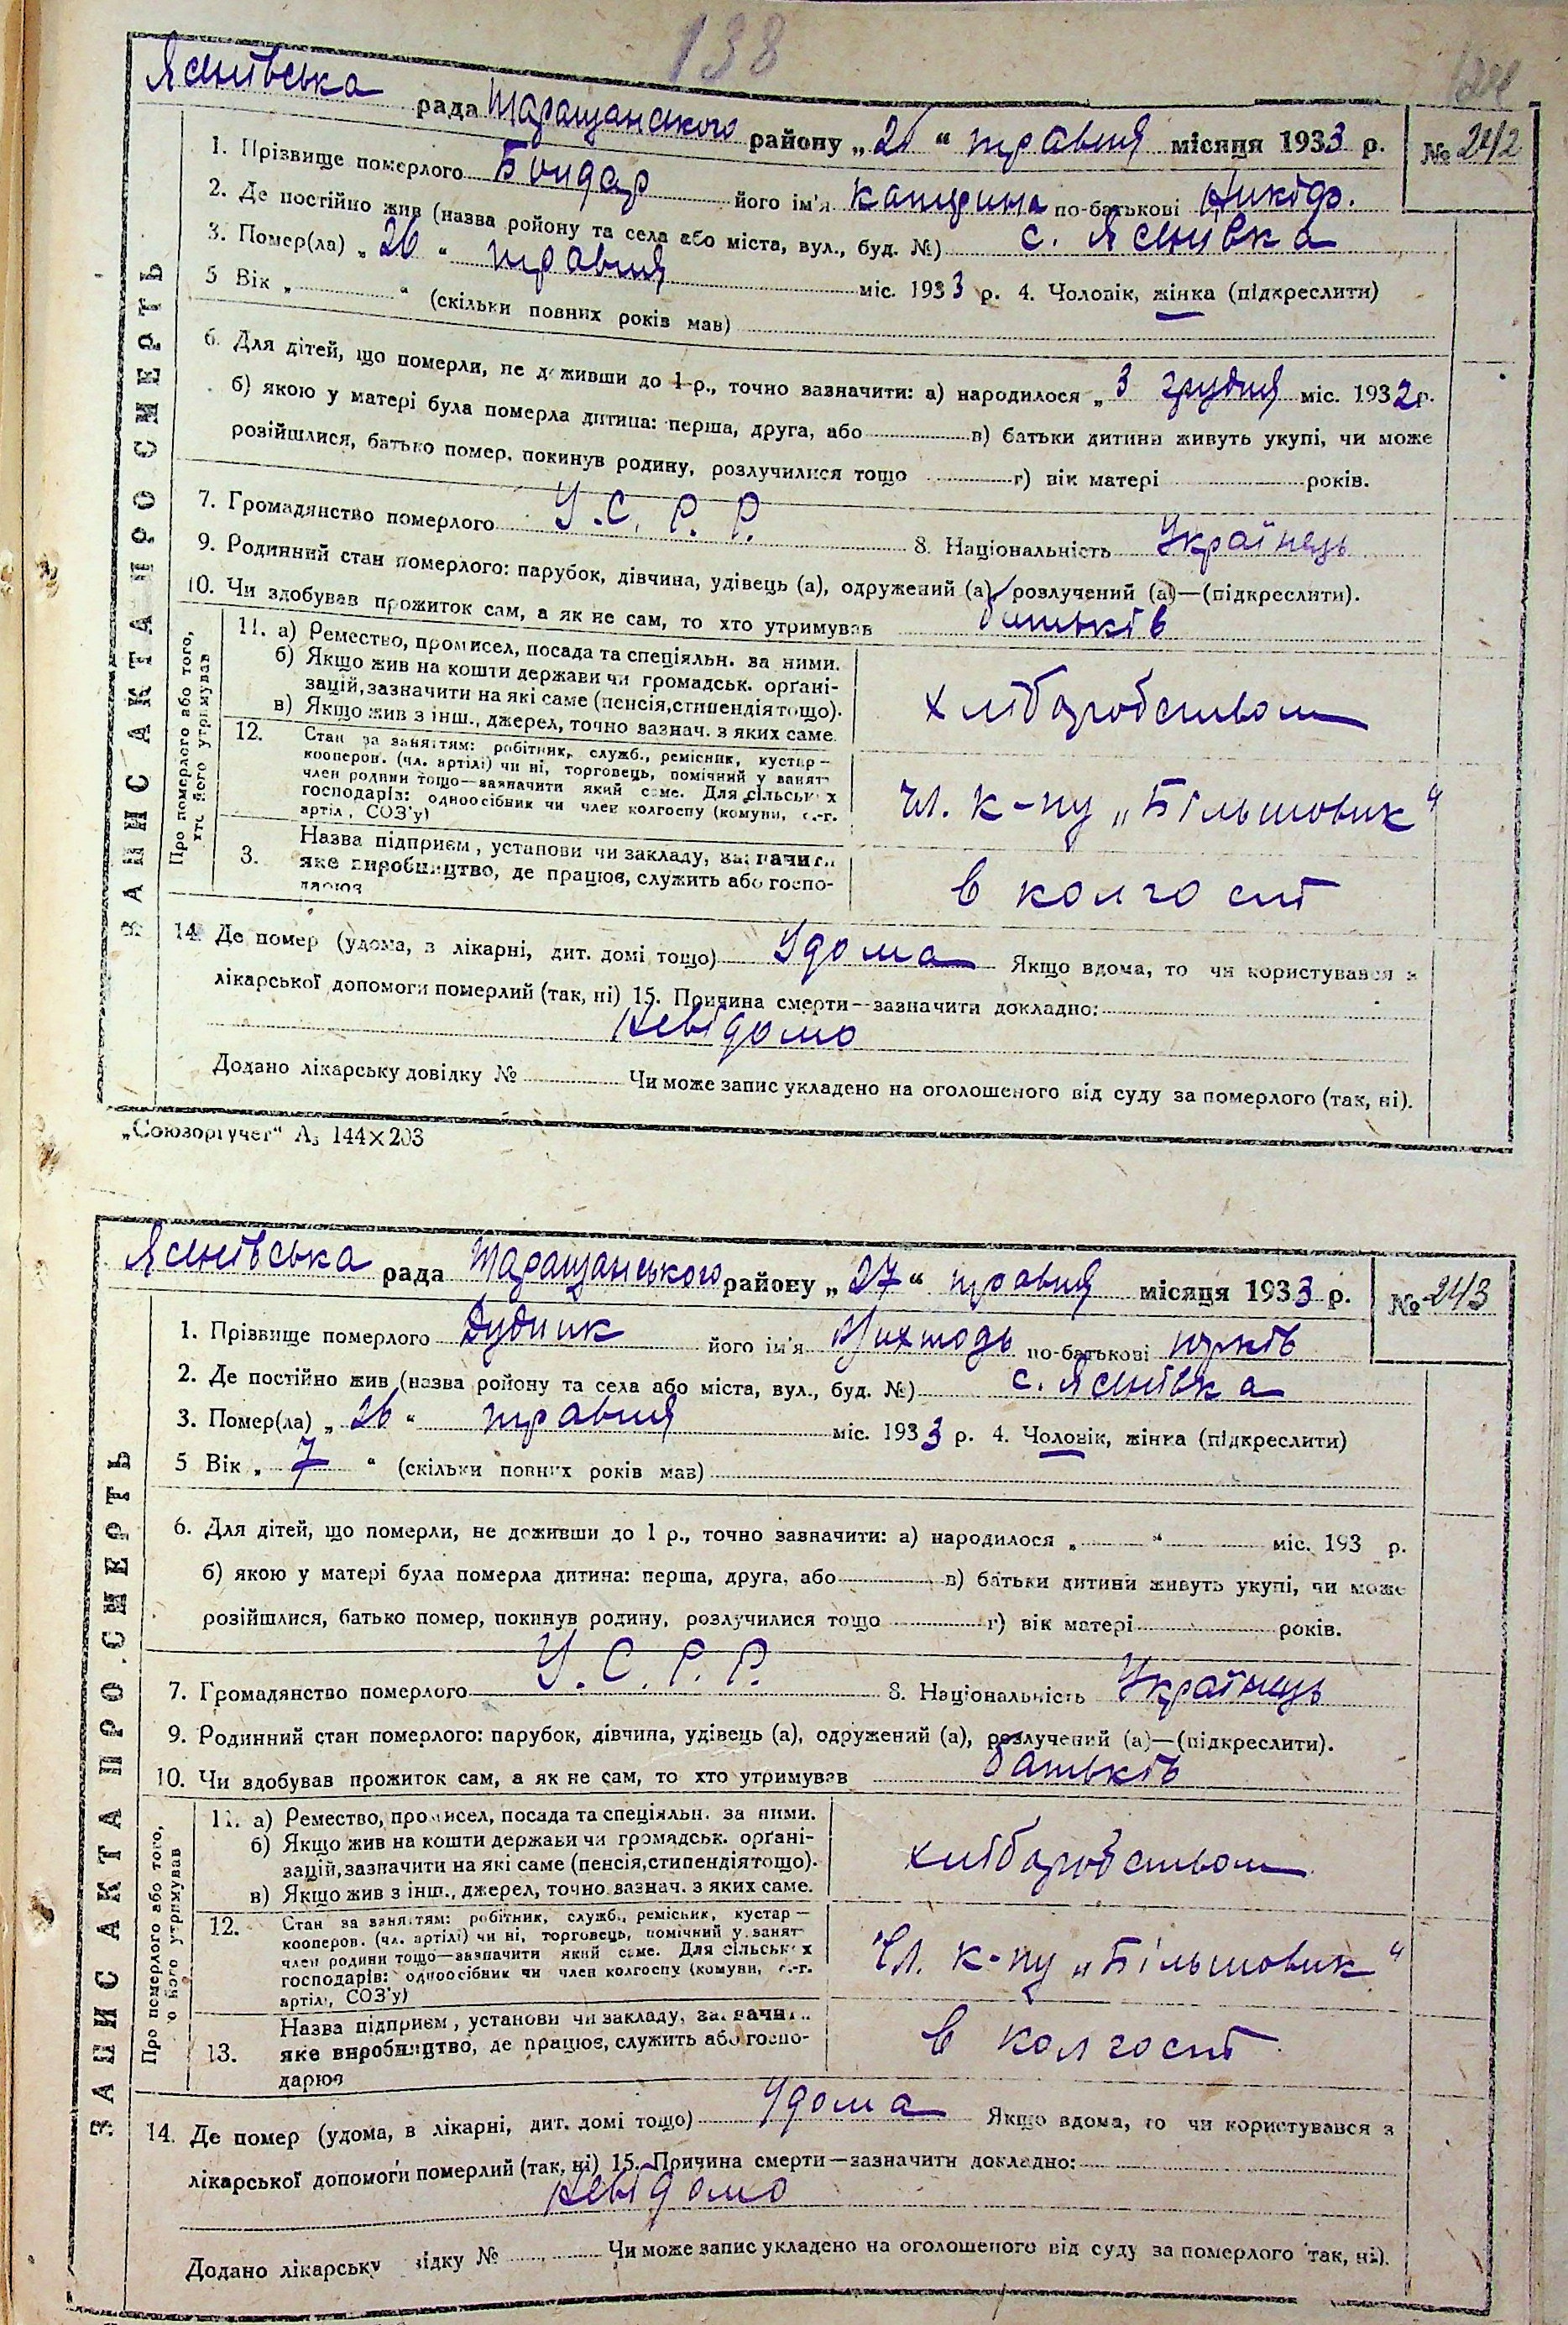 138
Яснівська рада Таращанського району „26“ травня місяця 1933 р. № 242
1. Прізвище померлого Бондар його ім'я Катерина по-батькові Никіф.
2. Де постійно жив (назва ройону та села або міста, вул., буд. №) с. Яснівка
3. Помер(ла) „26“ травня міс. 1933 р. 4. Чоловік, жінка (підкреслити)
5 Вік „ “ (скільки повних років мав)
6. Для дітей, що померли, не доживши до 1 р., точно зазначити: а) народилося „3 грудня міс. 1932 р.
б) якою у матері була померла дитина: перша, друга, або в) батьки дитини живуть укупі, чи може
розійшлися, батько помер, покинув родину, розлучилися тощо г) вік матері років.
7. Громадянство померлого У.С.Р.Р. 8. Національність Українець
9. Родинний стан померлого: парубок, дівчина, удівець (а), одружений (а), розлучений (а)—(підкреслити).
10. Чи здобував прожиток сам, а як не сам, то хто утримував батьків
ЗАПИС АКТА ПРО СМЕРТЬ
Про померлого або того, хто його утримував
11. а) Ремество, промисел, посада та спеціяльн. за ними.
б) Якщо жив на кошти держави чи громадськ. орґані-
зацій, зазначити на які саме (пенсія, стипендія тощо).
в) Якщо жив з інш., джерел, точно вазнач. з яких саме.
хліборобством
12. Стан за заняттям: робітник, служб., ремісник, кустар—
кооперов. (чл. артілі) чи ні, торговець, помічний у занят
член родини тощо—зазначити який саме. Для сільськ х
господарів: одноосібник чи член колгоспу (комуни, с.-г.
артіл, СОЗ'у)
чл. к-пу „Більшовик“
3. Назва підприєм, установи чи закладу, зазначити
яке виробництво, де працює, служить або госпо-
дарює
в колгоспі
14. Де помер (удома, в лікарні, дит. домі тощо) Удома Якщо вдома, то чи користувався з
лікарської допомоги померлий (так, ні) 15. Причина смерти—зазначити докладно:
Невідомо
Додано лікарську довідку № Чи може запис укладено на оголошеного від суду за померлого (так, ні).
„Союзоргучет“ А₅ 144×203
Яснівська рада Таращанського району „27“ травня місяця 1933 р. № 243
1. Прізвище померлого Дудник його ім'я по-батькові Юрків
2. Де постійно жив (назва ройону та села або міста, вул., буд. №) с. Яснівка
3. Помер(ла) „26“ травня міс. 1933 р. 4. Чоловік, жінка (підкреслити)
5 Вік „7“ (скільки повних років мав)
6. Для дітей, що померли, не доживши до 1 р., точно зазначити: а) народилося „ “ міс. 193 р.
б) якою у матері була померла дитина: перша, друга, або в) батьки дитини живуть укупі, чи може
розійшлися, батько помер, покинув родину, розлучилися тощо г) вік матері років.
7. Громадянство померлого У.С.Р.Р. 8. Національність Українець
9. Родинний стан померлого: парубок, дівчина, удівець (а), одружений (а), розлучений (а)—(підкреслити).
10. Чи здобував прожиток сам, а як не сам, то хто утримував батьків
ЗАПИС АКТА ПРО СМЕРТЬ
Про померлого або того, о його утримував
11. а) Ремество, промисел, посада та спеціяльн. за ними.
б) Якщо жив на кошти держави чи громадськ. орґані-
зацій, зазначити на які саме (пенсія, стипендія тощо).
в) Якщо жив з інш., джерел, точно вазнач. з яких саме.
хліборобством
12. Стан за заняттям: робітник, служб., ремісник, кустар—
кооперов. (чл. артілі) чи ні, торговець, помічний у занят
член родини тощо—зазначити який саме. Для сільськ х
господарів: одноосібник чи член колгоспу (комуни, с.-г.
артіл, СОЗ'у)
Чл. к-пу „Більшовик“
13. Назва підприєм, установи чи закладу, зазначити
яке виробництво, де працює, служить або госпо-
дарює
в колгоспі
14. Де помер (удома, в лікарні, дит. домі тощо) Удома Якщо вдома, то чи користувався з
лікарської допомоги померлий (так, ні) 15. Причина смерти—зазначити докладно:
Невідомо
Додано лікарську відку № Чи може запис укладено на оголошеного від суду за померлого так, ні).